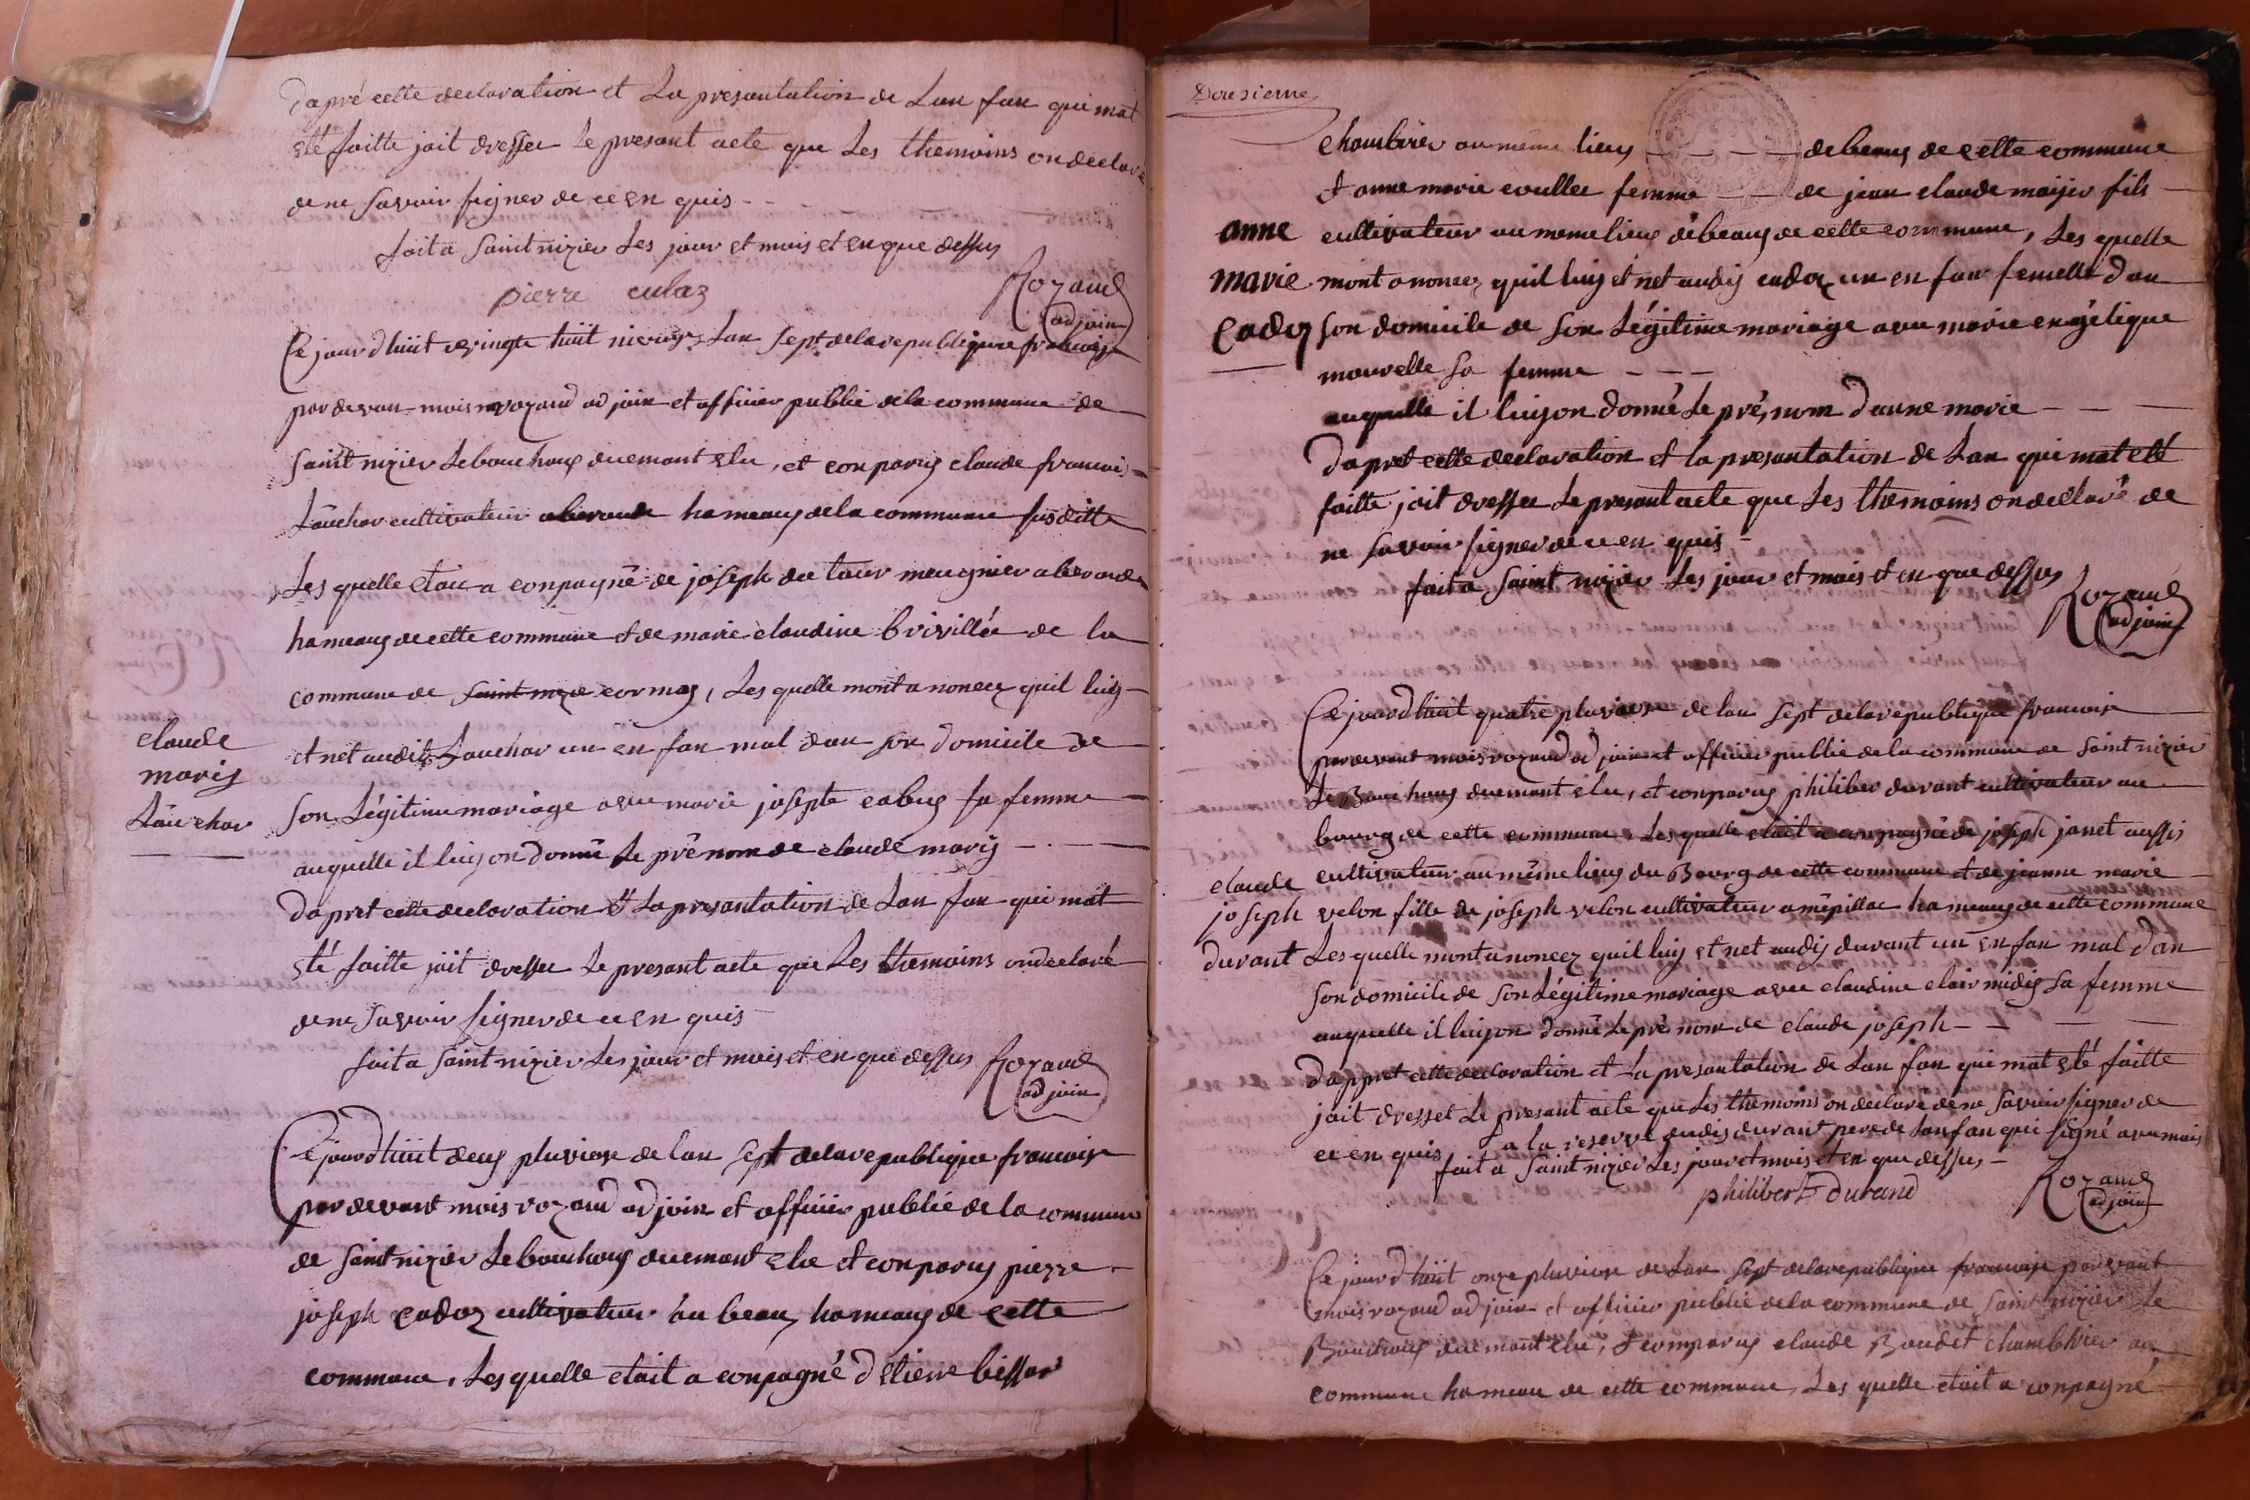 dapré cette declaration et La presantation de Lan fan qui mat
eté faitte jait dresser Le presant acte que Les themoins on declare
de ne savoir signer de ce en quis
fait a saint nizier Les jour et mois et en que dessus
pierre culaz
Rozand
adjoin
Ce jourdhüit vingte hüit nivose Lan sept de la republique francoise
par devan mois rozand adjoin et officier public de la commune de
saint nizier Le bouchoux duemant elu, et conparus claude francois
Lauchar cultivateur a beraude hameaux de la commune susditte
Les quelle etai a conpagné de joseph du tour meugnier a beraude
hameaux de cette commune et de marie claudine brivillée de la
commune de saint nizie cormoz, Les quelle mont a noncez quil luis
et net audit Lauchar un en fan mal dan son domicile de
claude
maris
Lauchar
son Légitime mariage avec marie josephe cabus sa femme
auquelle il luis on donné Le prénom de claude maris
dapret cette declaration et La presantation de Lan fan qui mat
eté faitte jait dresser Le presant acte que Les themoins on declaré
de ne savoir signer de ce en quis
fait a saint nizier Les jour et mois et en que dessus
Rozand
adjoin
Ce jourdhüit deux pluviose de lan sept de la republique francoise
par devant mois rozand adjoin et officier public de la commune
de saint nizier Le bouchoux duemant elu et conparus pierre
joseph cadoz cultivateur au beaux hameaux de cette
commune, Les quelle etait a conpagné d etiene bissar
Dousieme
chambrier au meme lieux de beaux de cette commune
et anne marie couller femme de jean claude majier fils
anne
marie
cadoz
cultivateur au meme lieux de beaux de cette commune, Les quelle
mont a noncez quil luis et net audis cadoz un en fan femelle dan
son domicile de son Légitime mariage avec marie engélique
mourelle sa femme
auquelle il luis on donné Le prénom d anne marie
dapret cette declaration et la presantation de Lan qui mat eté
faitte jait dresser Le presant acte que Les themoins on declaré de
ne savoir signer de ce en quis
fait a saint nizier Les jour et mois et en que dessus
Rozand
adjoin
Ce jourdhüit quatre pluviose de lan sept de la republique francoise
par devant mois rozand adjoin et officier public de la commune de saint nizier
Le Bouchoux duemant elu, et conparus philiber durant cultivateur au
bourg de cette commune, Les quelle etait a conpagné de joseph janet aussis
cultivateur au même lieux du Bourg de cette commune et de jeanne marie
claude
joseph
durant
velon fille de joseph velon cultivateur a mépillac hameaux de cette commune
Les quelle mont a noncez quil luis et net audis durant un en fan mal dan
son domicile de son Légitime mariage avec claudine clair midis sa femme
auquelle il luis on donné Le prénom de claude joseph
dappret cette declaration et La presantation de Lan fan qui mat eté faitte
jait dresset Le presant acte que Les themoins on declaré de ne savoir signer de
ce en quis a la reserve dudis durant pere de Lanfan qui signé avec mois
fait a saint nizier Les jour et mois et en que dessus
philibert Durand
Rozand
adjoin
Ce jourdhüit onze pluviose de Lan sept de la republique francoise par devant
mois rozand adjoin et officier public de la commune de saint nizier Le
Bouchoux duemant elu, et comparus claude Boudet chambrier au
commune hameau de cette commune, Les quelle etait a conpagné